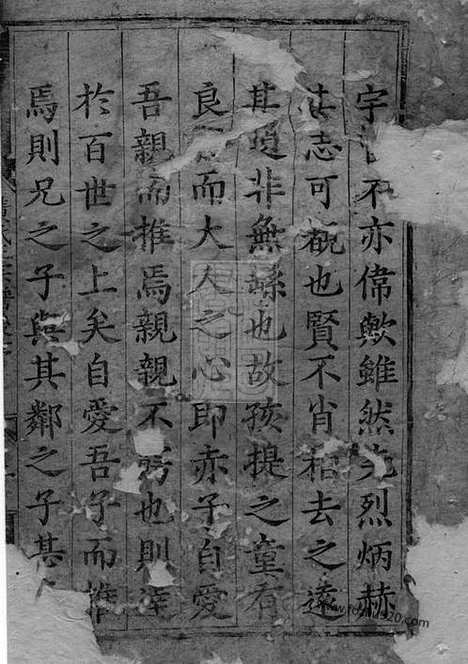 宇不亦偉歟雖然先烈炳赫
志可槪也賢不肖相去之遠
其道非無繇也故孩提之童有
良而大人之心即赤子自愛
吾親而推焉親親不旁也則達
於百世之上矣自愛吾子而推
焉則兄之子與其鄰之子甚